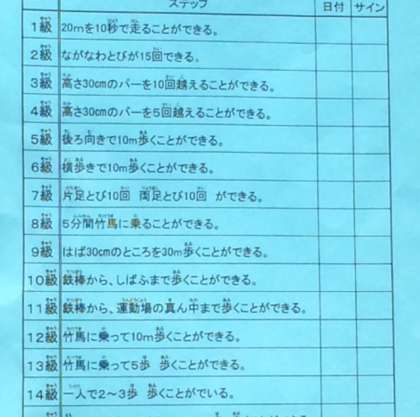 ステップ 日付 サイン
1級 20mを10秒で走ることができる。
2級 ながなわとびが15回できる。
3級 高さ30cmのバーを10回越えることができる。
4級 高さ30cmのバーを5回越えることができる。
5級 後ろ向きで10m歩くことができる。
6級 横歩きで10m歩くことができる。
7級 片足とび10回 両足とび10回 ができる。
8級 5分間竹馬に乗ることができる。
9級 はば30cmのところを30m歩くことができる。
10級 鉄棒から、しばふまで歩くことができる。
11級 鉄棒から、運動場の真ん中まで歩くことができる。
12級 竹馬に乗って10m歩くことができる。
13級 竹馬に乗って5歩 歩くことができる。
14級 一人で2〜3歩 歩くことがでいる。